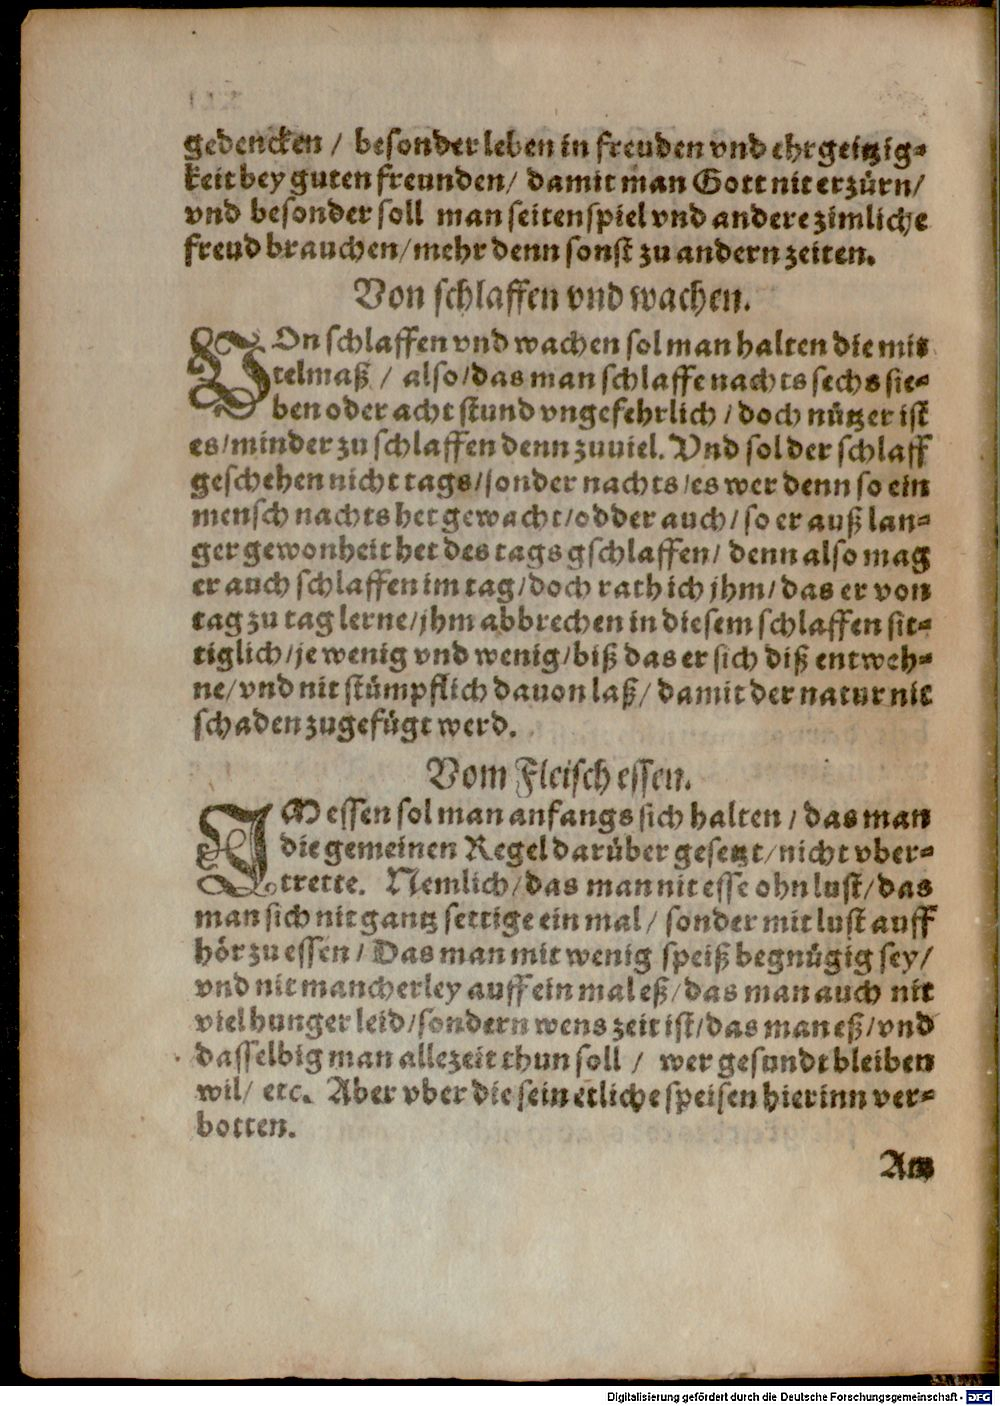 gedencken / besonder leben in freuden vnd ehrgeitzig-
keit bey guten freunden / damit man Gott nit erzürn /
vnd besonder soll man seitenspiel vnd andere zimliche
freud brauchen / mehr denn sonst zu andern zeiten.
Von schlaffen vnd wachen.
VOn schlaffen vnd wachen sol man halten die mit
telmaß / also / das man schlaffe nachts sechs sie-
ben oder acht stund vngefehrlich / doch nützer ist
es / minder zu schlaffen denn zuuiel. Vnd sol der schlaff
geschehen nicht tags / sonder nachts / es wer denn so ein
mensch nachts het gewacht / odder auch / so er auß lan-
ger gewonheit het des tags gschlaffen / denn also mag
er auch schlaffen im tag / doch rath ich jhm / das er von
tag zu tag lerne / jhm abbrechen in diesem schlaffen sit-
tiglich / je wenig vnd wenig / biß das er sich diß entweh-
ne / vnd nit stümpflich dauon laß / damit der natur nit
schaden zugefügt werd.
Vom Fleisch essen.
IM essen sol man anfangs sich halten / das man
die gemeinen Regel darüber gesetzt / nicht vber-
trette. Nemlich / das man nit esse ohn lust / das
man sich nit gantz settige ein mal / sonder mit lust auff
hör zu essen / Das man mit wenig speiß begnügig sey /
vnd nit mancherley auff ein mal eß / das man auch nit
viel hunger leid / sondern wens zeit ist / das man eß / vnd
dasselbig man allezeit thun soll / wer gesundt bleiben
wil / etc. Aber vber die sein etliche speisen hierinn ver-
botten.
Digitalisierung gefördert durch die Deutsche Forschungsgemeinschaft - DFG